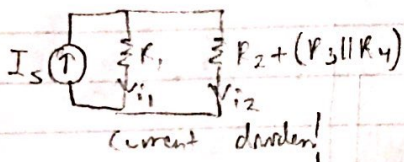 Is
R₁
R₂ + (R₃ || R₄)
i₁
i₂
current divider!